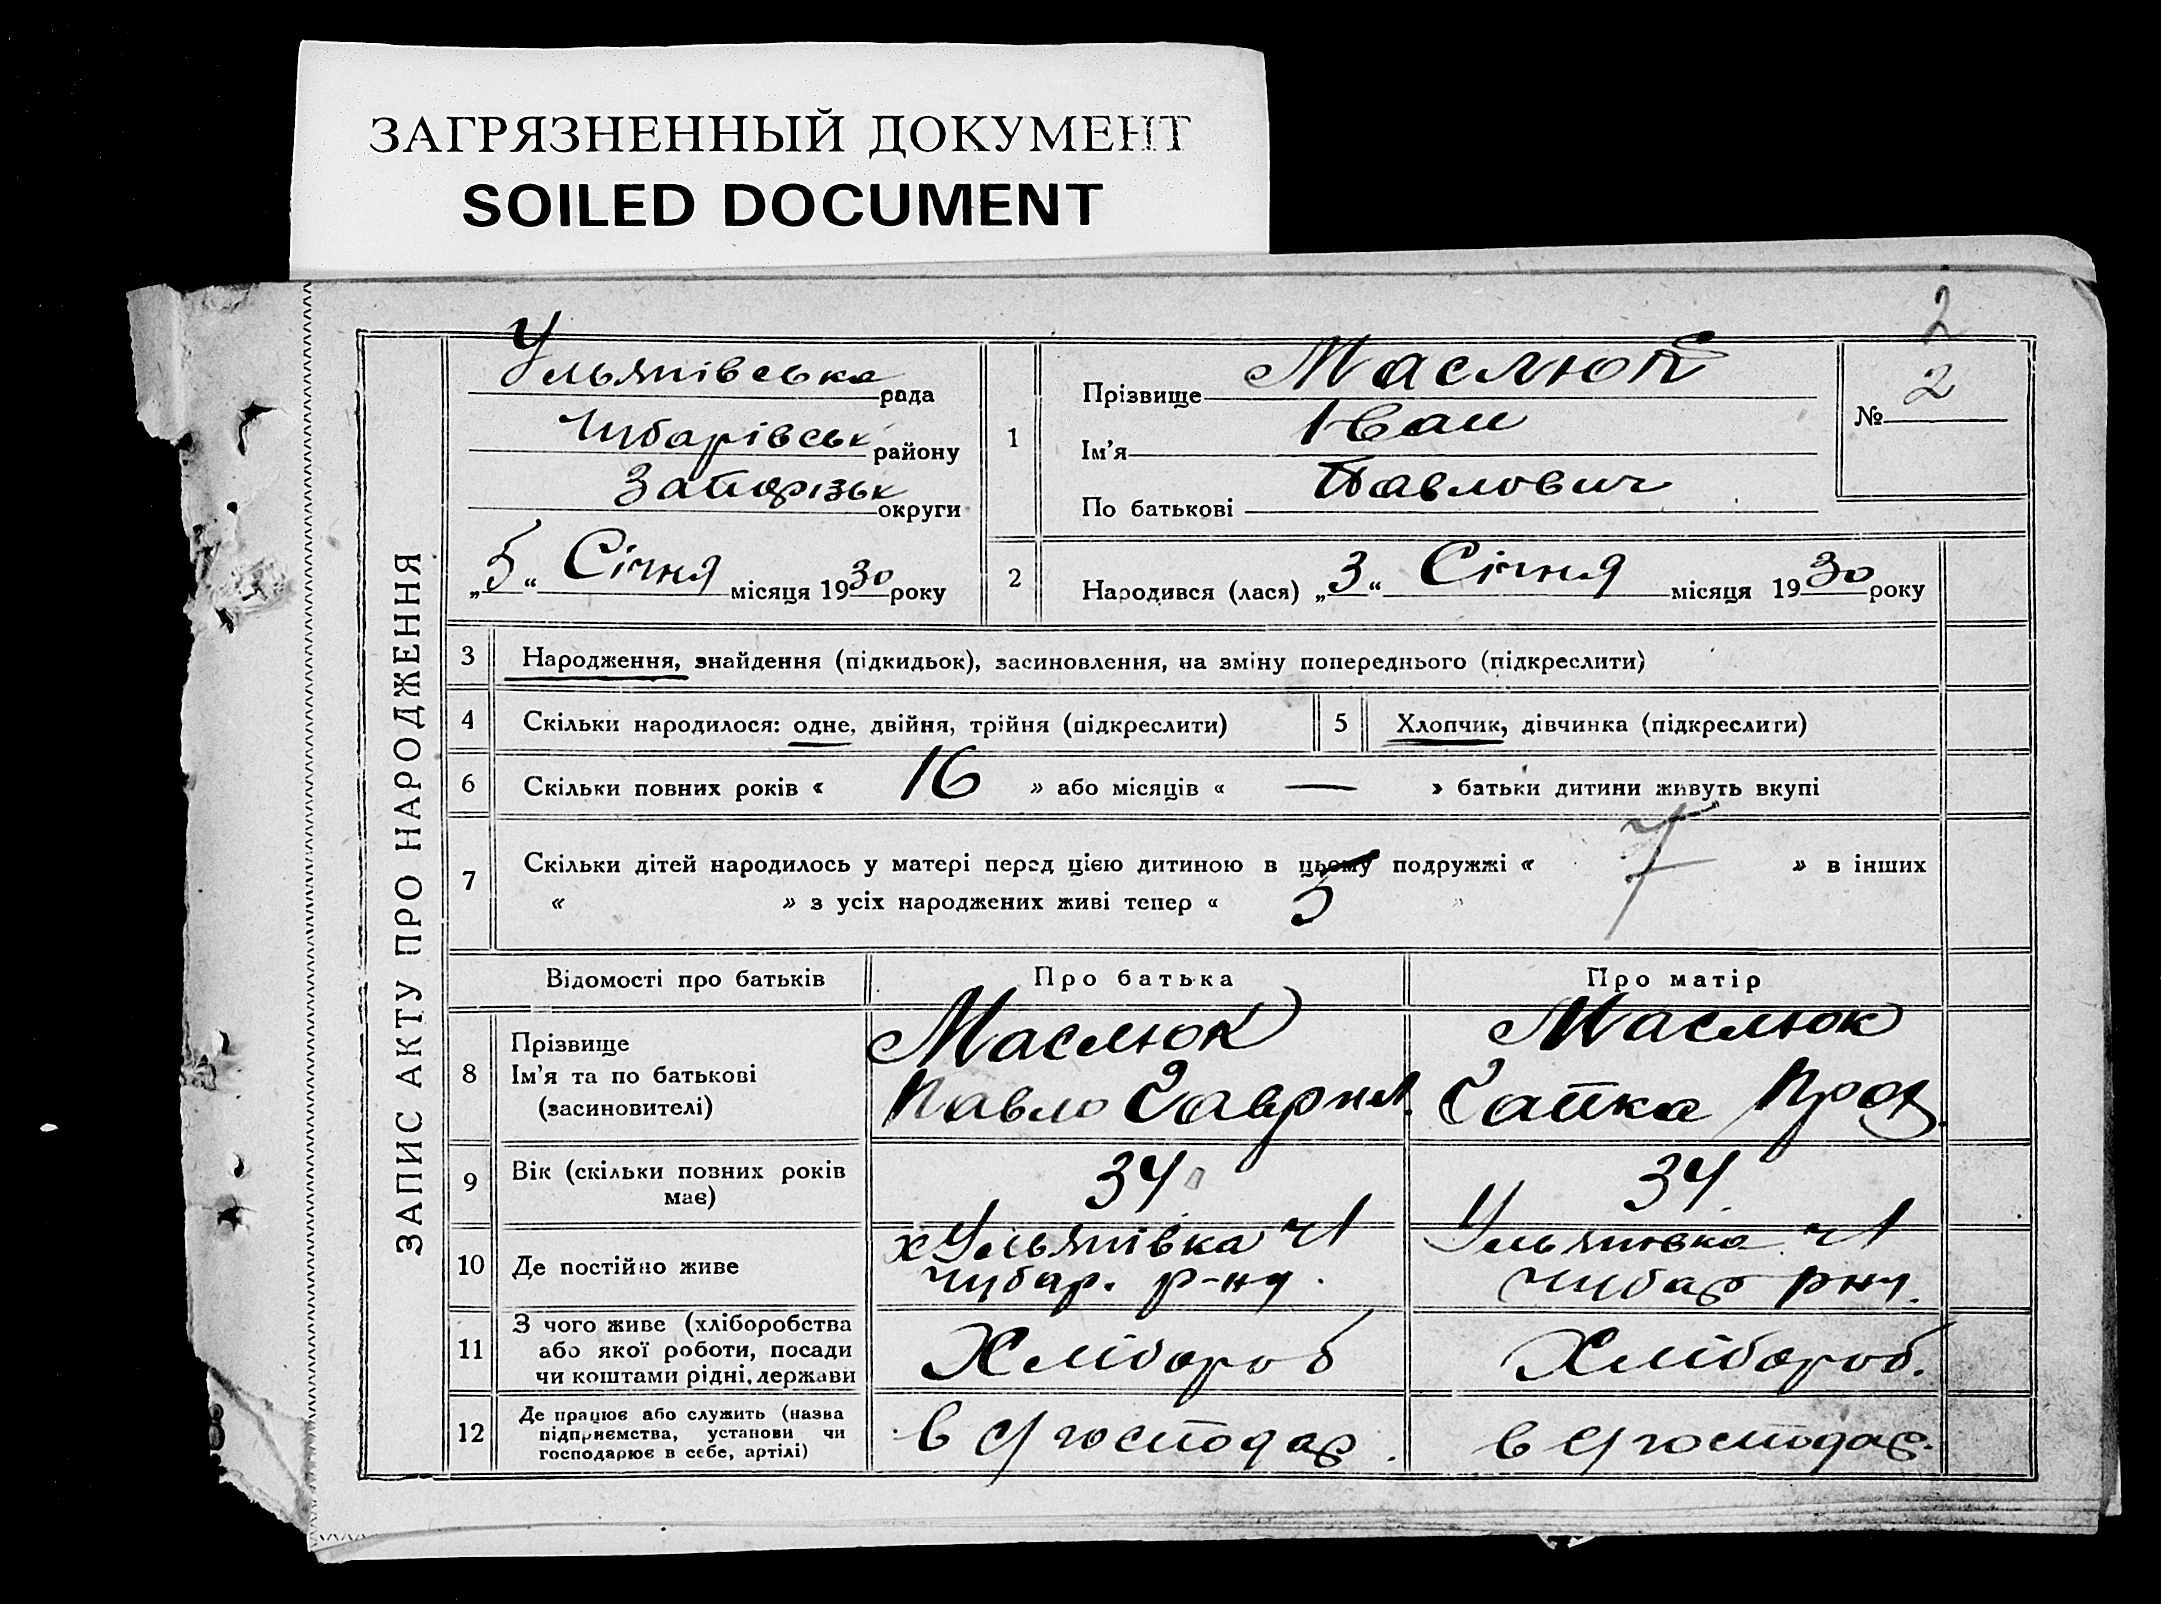 ЗАГРЯЗНЕННЫЙ ДОКУМЕНТ
SOILED DOCUMENT
ЗАПИС АКТУ ПРО НАРОДЖЕННЯ
Ульянівська рада
Чубарівськ району
Запорізьк округи
„5“ Січня місяця 1930 року
1
Прізвище Маслюк
Ім'я Іван
По батькові Павлович
2
№ 2
2
Народився (лася) „3“ Січня місяця 1930 року
3 Народження, знайдення (підкидьок), засиновлення, на зміну попереднього (підкреслити)
4 Скільки народилося: одне, двійня, трійня (підкреслити)
5 Хлопчик, дівчинка (підкреслити)
6 Скільки повних років « 16 » або місяців « — » батьки дитини живуть вкупі
7 Скільки дітей народилось у матері перед цією дитиною в цьому подружжі « 7 » в інших
« » з усіх народжених живі тепер « 5 »
Відомості про батьків Про батька Про матір
8
Прізвище
Ім'я та по батькові
(засиновителі)
Маслюк
Павло Гаврил.
Маслюк
Гапка
9
Вік (скільки повних років
має)
34
34
10 Де постійно живе
х Ульянівка
Чубар. р-ну.
Ульянівка
Чубар рну.
11
З чого живе (хліборобства
або якої роботи, посади
чи коштами рідні, держави
Хлібороб
Хлібороб.
12
Де працює або служить (назва
підприємства, установи чи
господарює в себе, артілі)
в с/господар.
в с/господар.